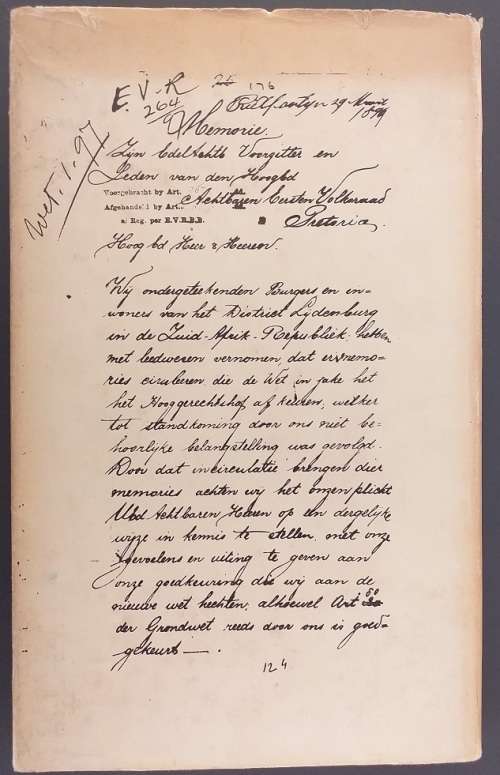 E. V. R
264
176
Wet. 1. 97
29 Maart
1899
Memorie.
Zyn EdelAchtb Voorzitter en
Leden van den HoogEd
Voorgebracht by Art.
Achtbaren Eersten Volksraad
Afgehandeld by Art.
al Reg. per E.V.R.B.B.
Pretoria.
HoogEd Heer & Heeren.
Wy ondergeteekenden Burgers en in-
woners van het District Lydenburg
in de Zuid-Afrik. Republiek, hebben
met leedwezen vernomen, dat er memo-
ries circuleren die de Wet in zake het
het Hooggerechtshof af keuren, welker
tot standkoming door ons met be-
hoorlyke belangstelling was gevolgd.
Door dat in circulatie brengen dier
memories achten wy het onzen plicht
UEd Achtbaren Heeren op een dergelyke
wyze in kennis te stellen, met onze
gevoelens en uiting te geven aan
onze goedkeuring die wij aan de
nieuwe wet hechten, alhoewel Art 80
der Grondwet reeds door ons is goed-
gekeurt — .
124